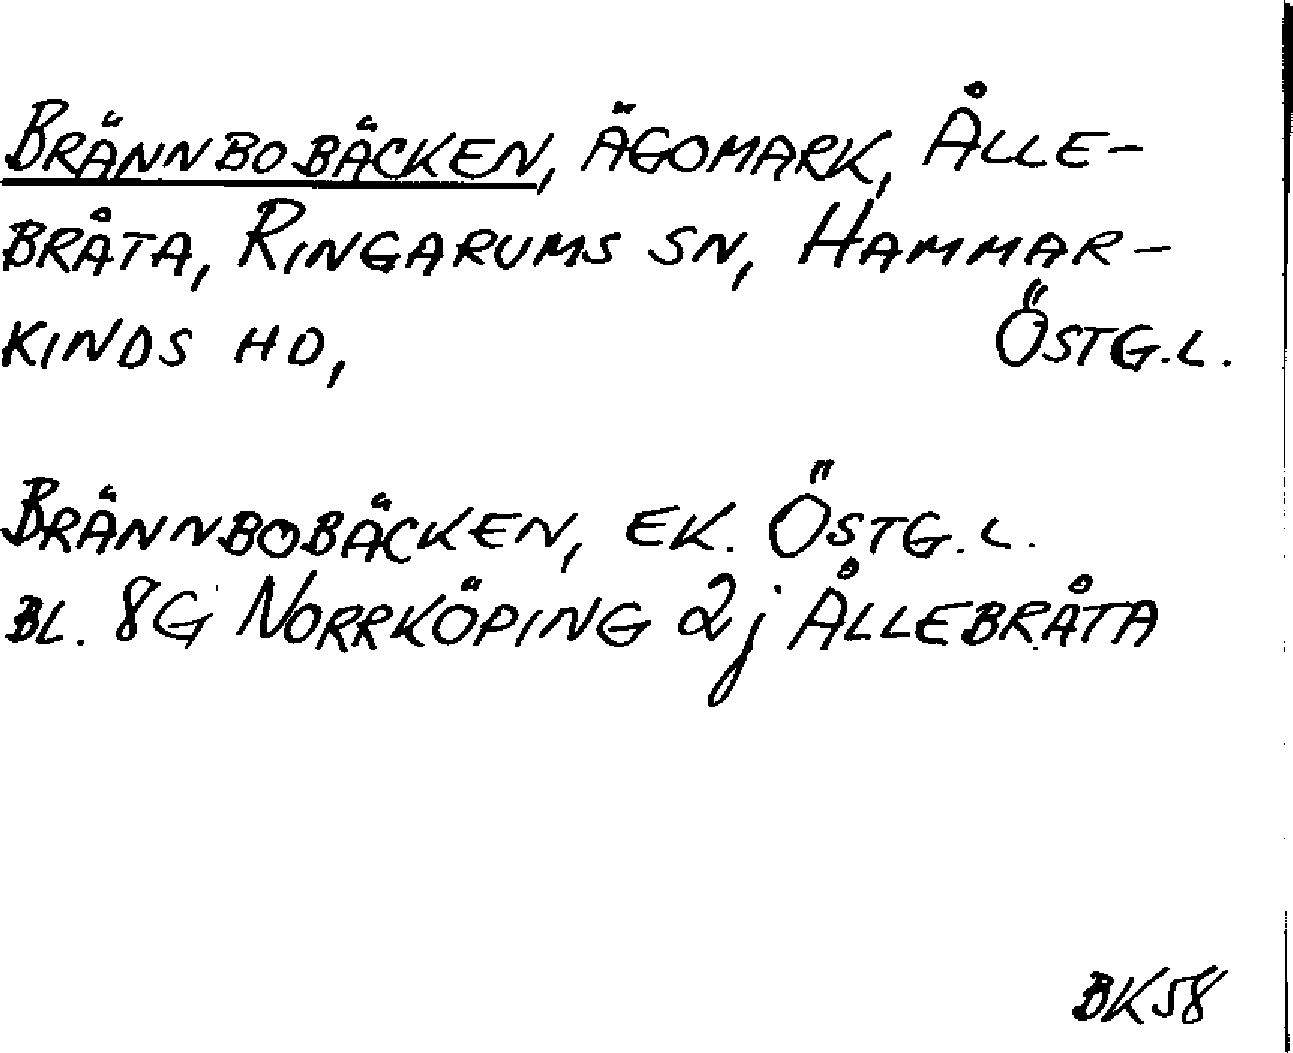 BRÄNNBOBÄCKEN, ÄGOMARK, ÅLLE-
BRÅTA, RINGARUMS SN, HAMMAR-
KINDS HD, ÖSTG.L.
BRÄNNBOBÄCKEN, EK. ÖSTG.L.
BL. 8G NORRKÖPING 2j ÅLLEBRÅTA
BK58